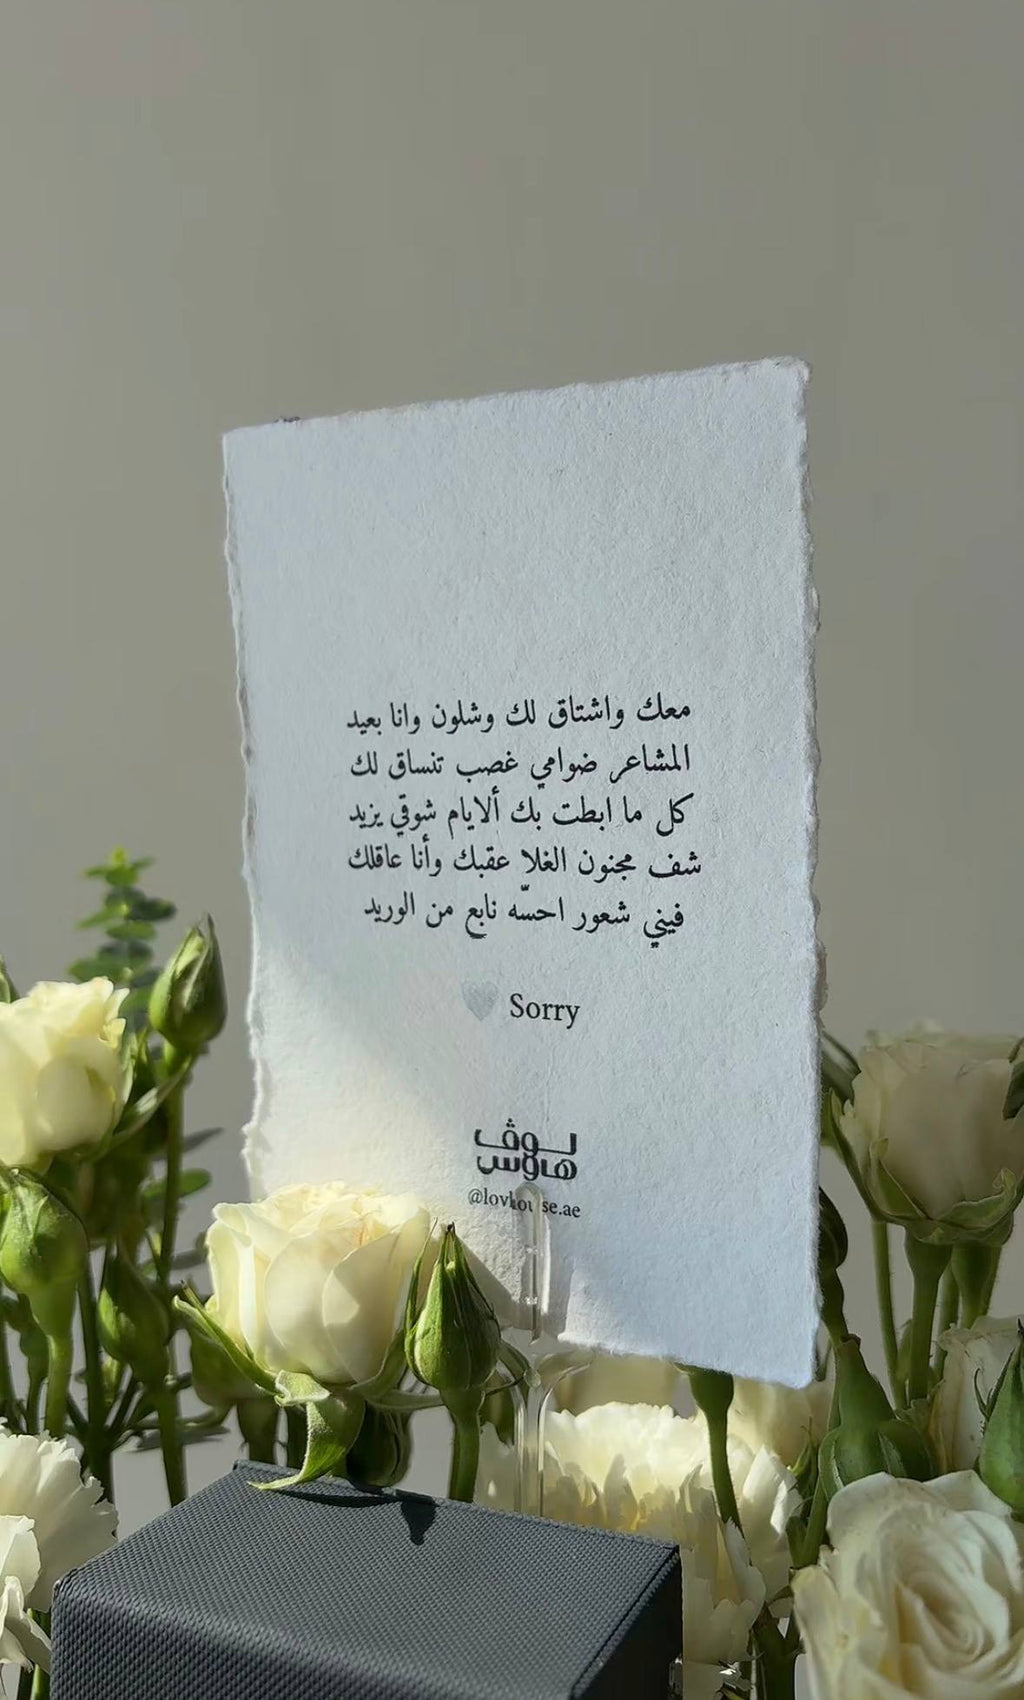 معك واشتاق لك وشلون وانا بعيد
المشاعر ضوامي غصب تنساق لك
كل ما ابطت بك ألايام شوقي يزيد
شف مجنون الغلا عقبك وأنا عاقلك
فيني شعور احسّه نابع من الوريد
🤍 Sorry
لوڤ
هاوس
@lovhouse.ae